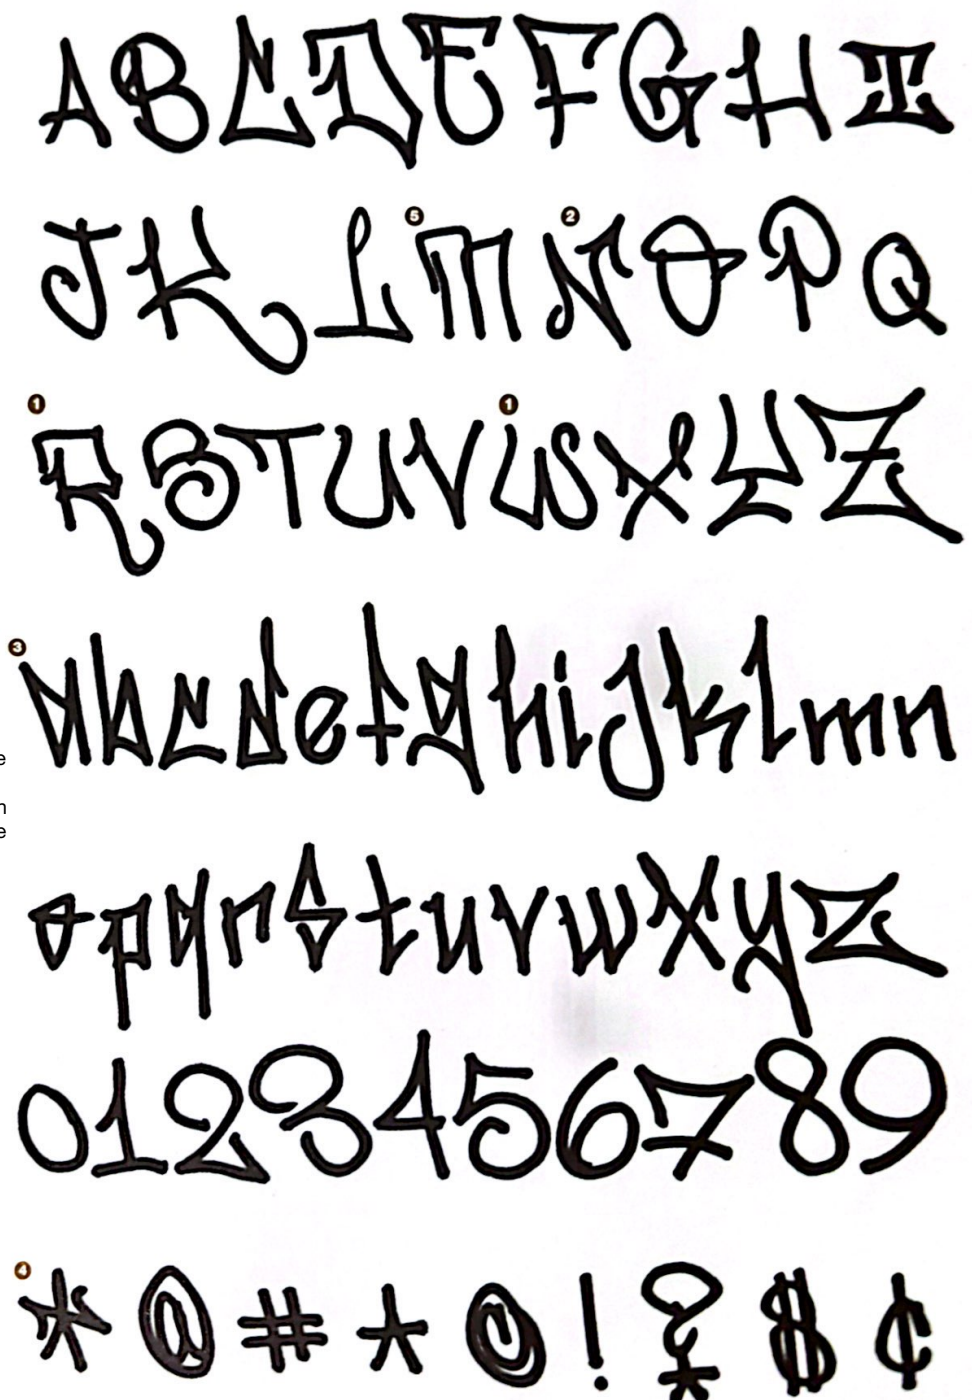 A B C D E F G H I
J K L 5 M 2 N O P Q
1 R S T U V 1 W X Y Z
3 a b c d e f g h i j k l m n
e
n
e
o p q r s t u v w x y z
0 1 2 3 4 5 6 7 8 9
4 * @ # * © ! ? $ ¢